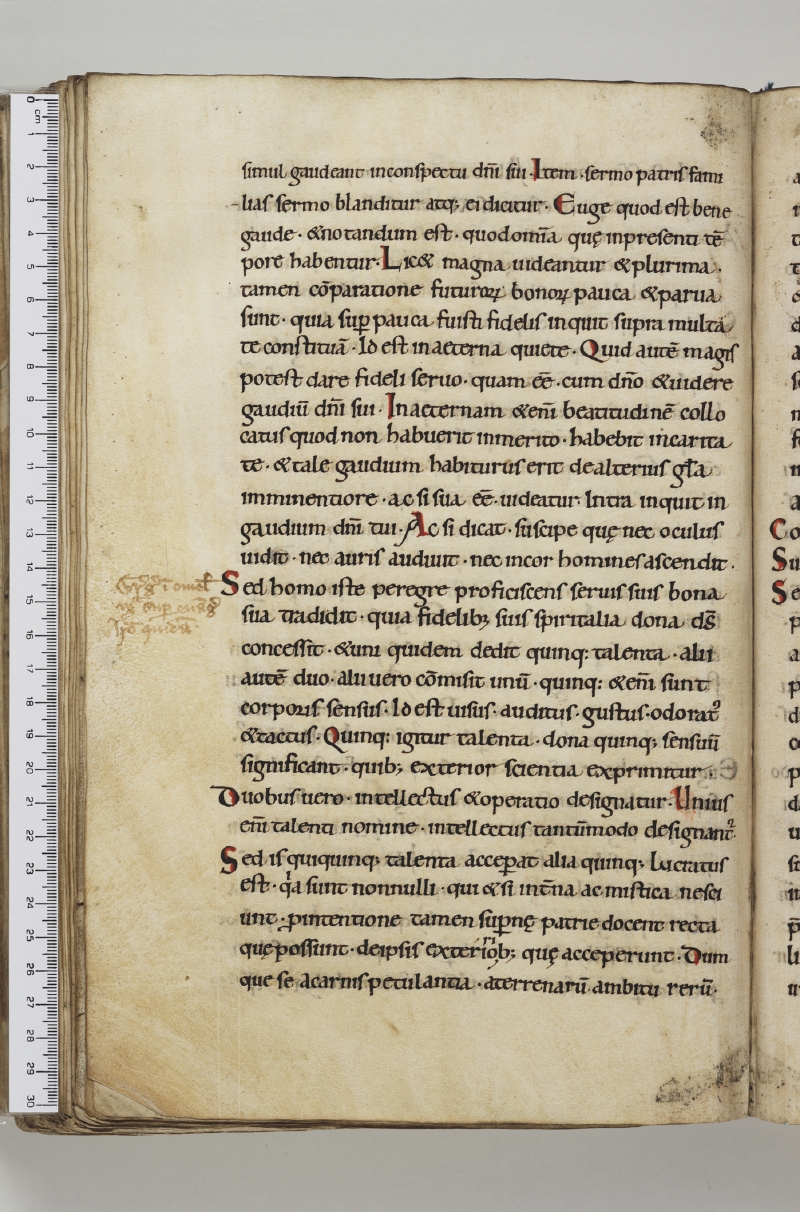 simul gaudeant inconspectu dñi sui. Item. sermo patris fami
lias sermo blanditur atq; ei dicitur. Euge quod est bene
gaude. &notandum est. quod omīa quę inpresenti tē
pore habentur. Lic& magna uideantur &plurima.
tamen cōparatione futuroꝝ bonoꝝ pauca &parua
sunt. quia suꝑ pauca fuisti fidelis inquit supra multa
te constituā. Id est in aeterna quiete. Quid autē magis
potest dare fideli seruo. quam eē. cum dño &uidere
gaudiū dñi sui. In aeternam &eni beatitudinē collo
catus quod non habuerit inmerito. habebit incarita
te. &tale gaudium habiturus erit dealterius gła
imminentiore. ac si sua eē. uideatur. Intra inquit in
gaudium dñi tui. Ac si dicat. suscipe quę nec oculus
uidit. nec auris audiuit. nec incor homines ascendit.
Sed homo iste peregre proficiscens seruis suis bona
sua tradidit. quia fidelib; suis spiritalia dona dš
concessit. &uni quidem dedit quinq: talenta. alii
autē duo. alii uero cōmisit unū. quinq: &eni sunt
corporis sensus. Id est uisus. auditus. gustus. odoratꝰ
&tactus. Quinq: igitur talenta. dona quinq; sensuū
significant. quib; exterior scientia exprimitur.
Duobus uero. intellectus &operatio designatur. Unius
eñi talenti nomine. intellectus tantūmodo designant̃.
Sed is qui quinq; talenta acceꝑat alia quinq; lucratus
est. qa sunt nonnulli. qui &si int̄na ac mistica nesci
unt. ꝑintentione tamen suꝑnę patrie docent recta
quę possunt. deipsis exteriorib; quę acceperunt. Dum
que se a carnis petulantia. aterrenarū ambitu rerū.
Co
Su
Se